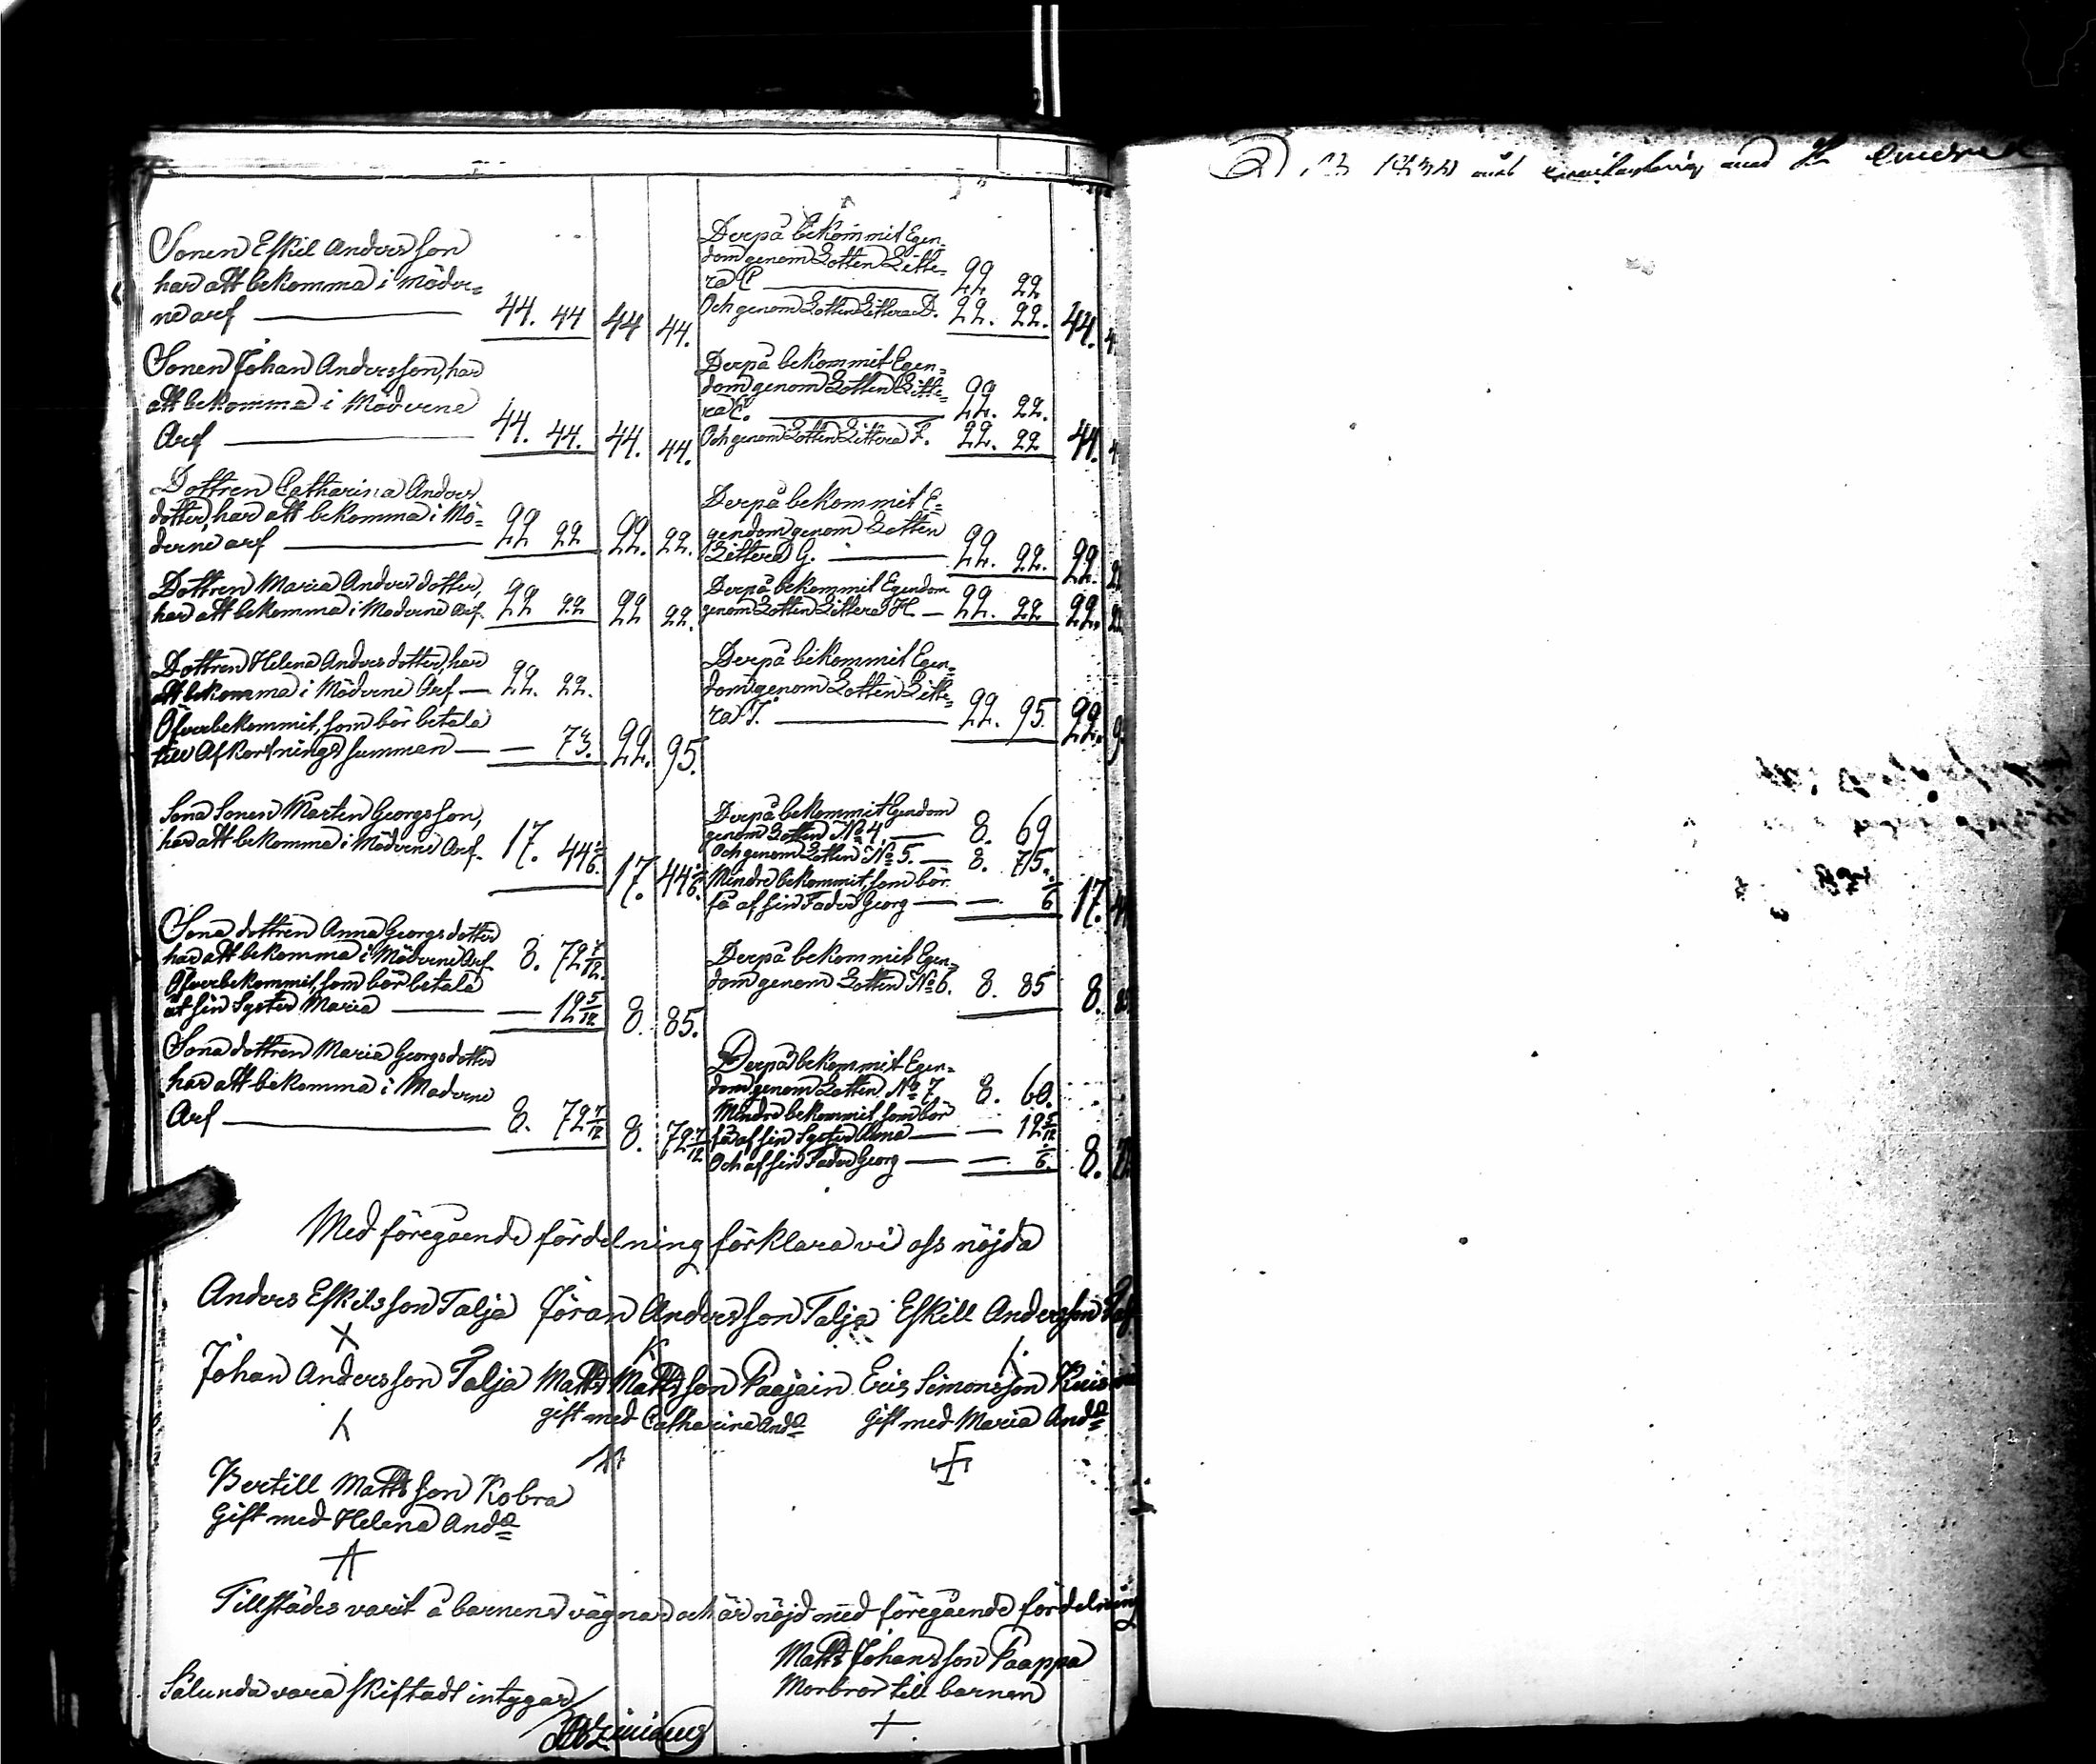 Sonen Eskil Andersson
har att bekomma i Möder=
ne arf — 44. 44 | 44 | 44.
Derpå bekommit Egen=
dom genom Lotten Litte=
ra C — 22 22
Och genom Lotten Littera D. 22. 22. | 44.
Sonen Johan Andersson, har
att bekomma i Möderne
Arf — 44. 44. | 44. | 44.
Derpå bekommit Egen=
dom genom Lotten Litte=
ra E. — 22. 22.
Och genom Lotten Littera F. 22. 22 | 44.
Dottren Catharina Anders
dotter, har att bekomma i Mö=
derne arf — 22 22 | 22. | 22.
Derpå bekommit E=
gendom genom Lotten
Littera G. — 22. 22. | 22.
Dottren Maria Anders dotter,
har att bekomma i Moderne Arf. 22 22 | 22 | 22.
Derpå bekommit Egendom
genom Lotten Littera H — 22. 22 | 22.
Dottren Helena Anders dotter, har
att bekomma i Möderne Arf — 22. 22.
Öfverbekommit, som bör betala
till Afkortnings summan — — 73. | 22. | 95.
Derpå bekommit Egen=
dom genom Lotten Litte=
ra I. — 22. 95. | 22.
Sona Sonen Mårten Georgsson,
har att bekomma i Möderne Arf. 17. 44 1/6. | 17. | 44 1/6.
Derpå bekommit Egendom
genom Lotten No 4 — 8. 69
Och genom Lotten No 5. — 8. 75.
Mindre bekommit, som bör
få af sin Fader Georg — — 1/6 | 17.
Sona dottren Anna Georgsdotter
har att bekomma i Möderne Arf 8. 72 7/12.
Öfverbekommit, som bör betala
åt sin Syster Maria — — 12 5/12 | 8. | 85.
Derpå bekommit Egen=
dom genom Lotten No 6. 8. 85 | 8.
Sona dottren Maria Georgsdotter
har att bekomma i Moderne
Arf — 8. 72 7/12 | 8. | 72 7/12
Derpå bekommit Egen=
dom genom Lotten No 7. 8. 60.
Mindre bekommit, som bör
få af sin Syster Anna — — 12 5/12
Och af sin Fader Georg — — 1/6. | 8.
Med föregående fördelning förklara vi oss nöjda
Anders Eskilsson Talja Jöran Andersson Talja Eskill Andersson
Johan Andersson Talja Matts Mattsson Paajain Eric Simonsson
gift med Catharina Anda Gift med Maria Anda
Bertill Mattsson Kobra
Gift med Helena Anda
Tillstädes varit å barnens vägnar och är nöjd med föregående fördelning
Matts Johansson Paappa
Morbror till barnen
Sålunda vara skiftadt intygar